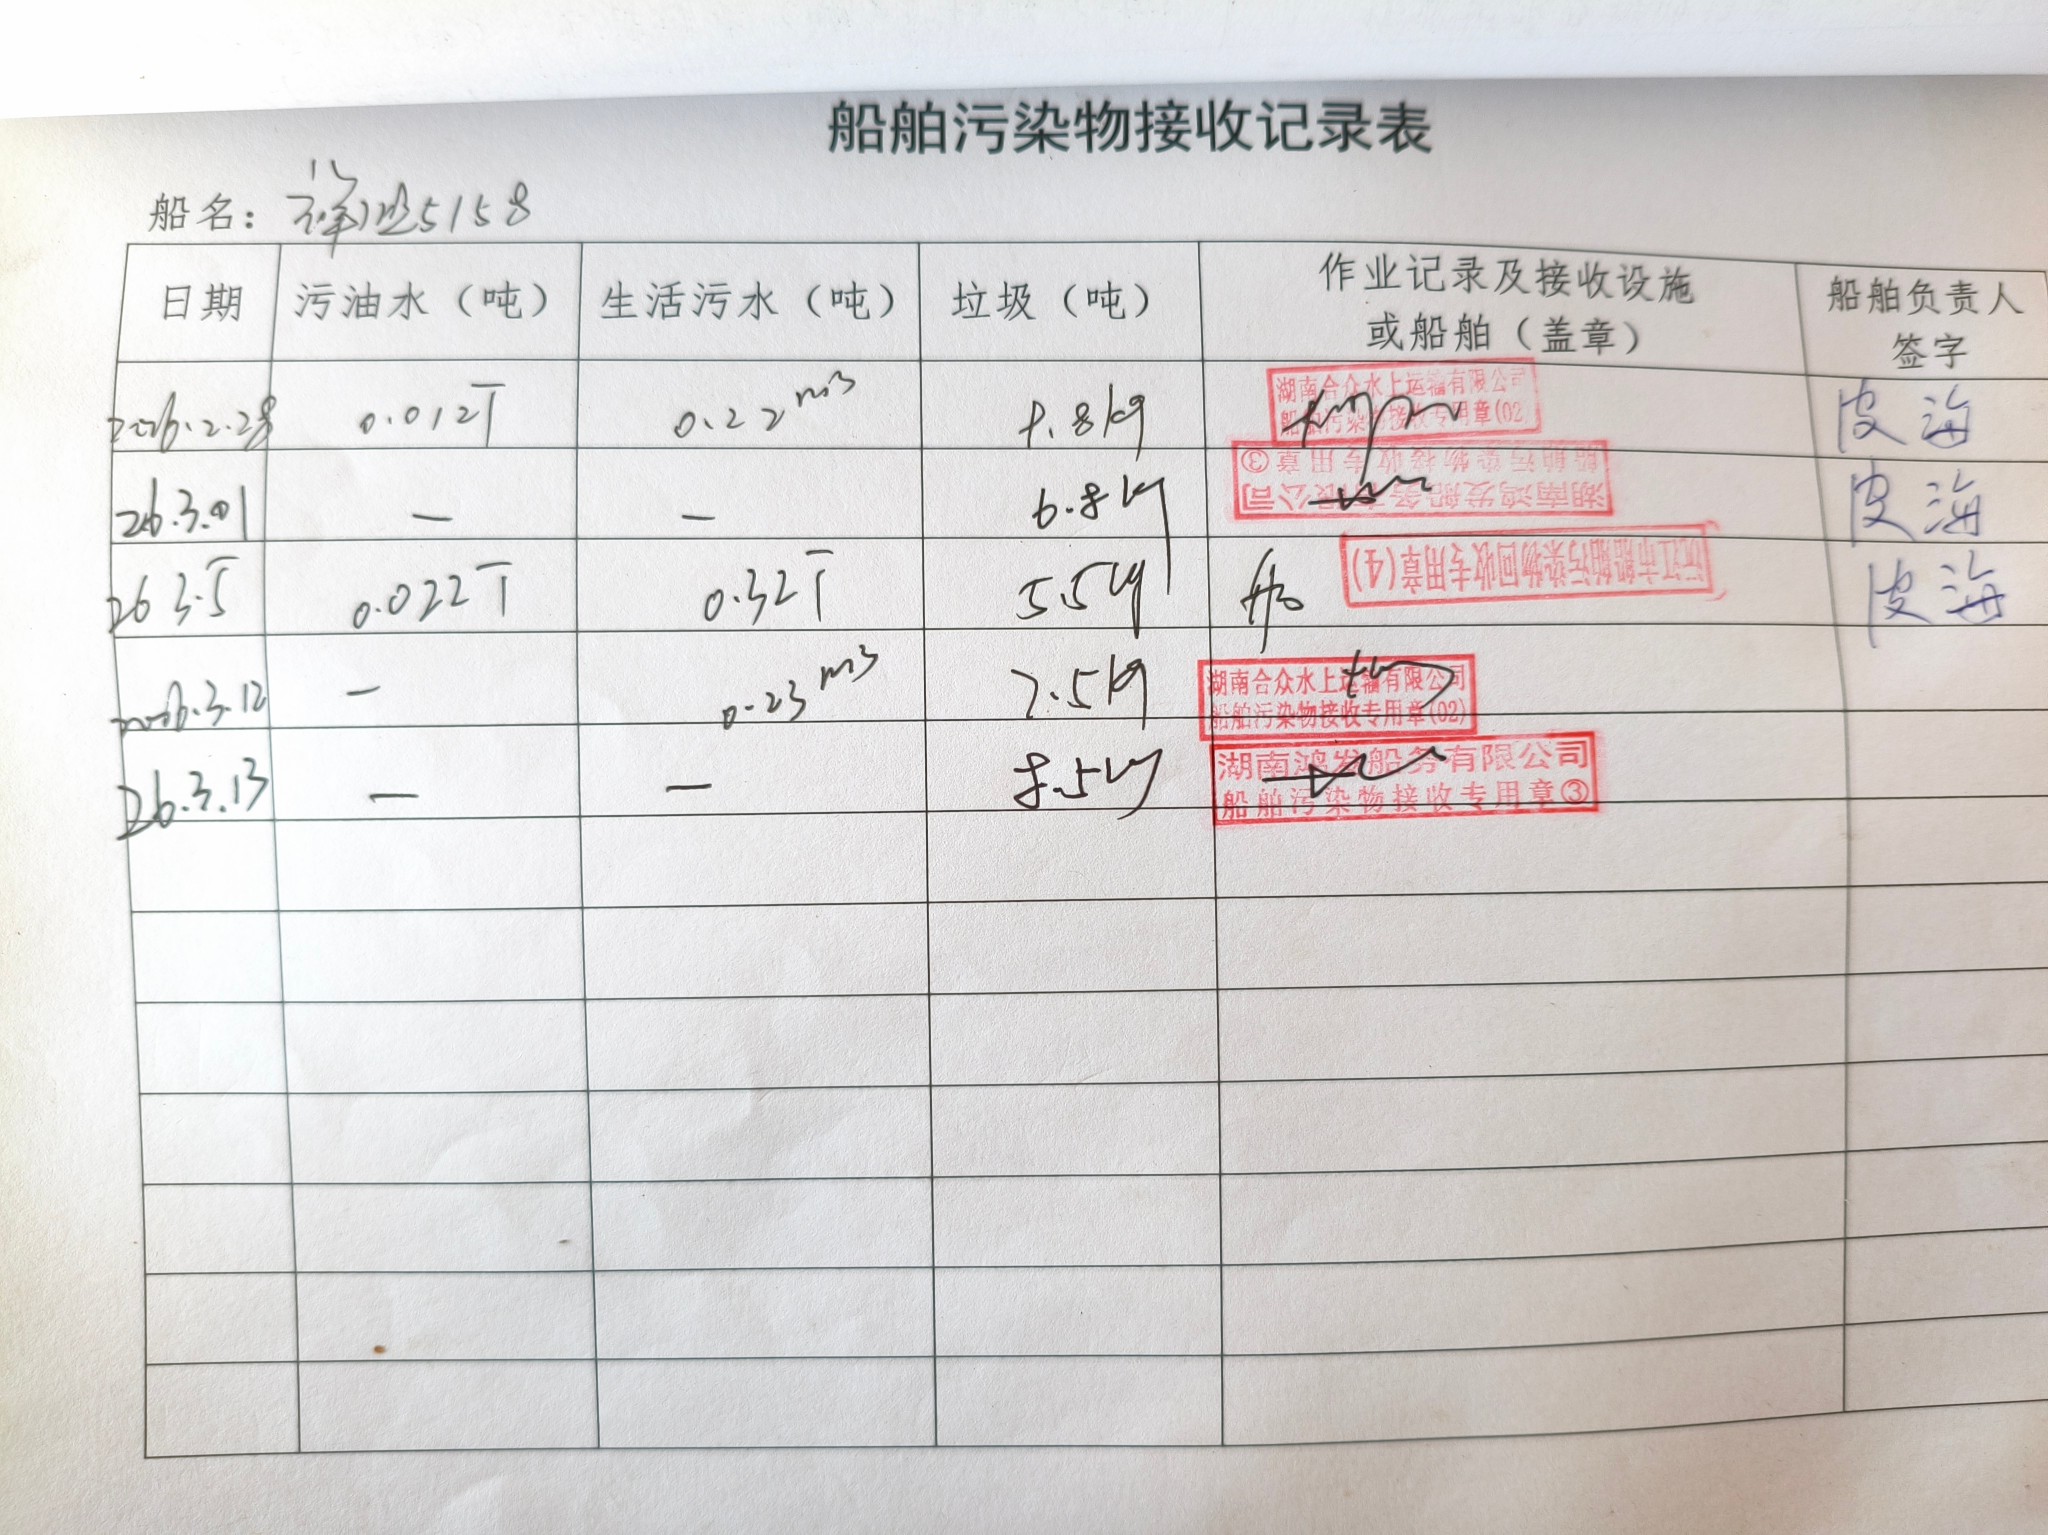 船舶污染物接收记录表
船名: 5158
日期 污油水(吨) 生活污水(吨) 垃圾(吨) 作业记录及接收设施或船舶(盖章) 船舶负责人签字
2026.2.28 0.012T 0.22m³ 1.8kg 湖南合众水上运输有限公司 船舶污染物接收专用章(02 皮海
26.3.01 — — 6.8kg 湖南鸿发船务有限公司 船舶污染物接收专用章③ 皮海
26 3.5 0.022T 0.32T 5.5kg 沅江市船舶污染物回收专用章(4) 皮海
2026.3.12 — 0.23m³ 7.5kg 湖南合众水上运输有限公司 船舶污染物接收专用章(02)
26.3.13 — — 8.5kg 湖南鸿发船务有限公司 船舶污染物接收专用章③